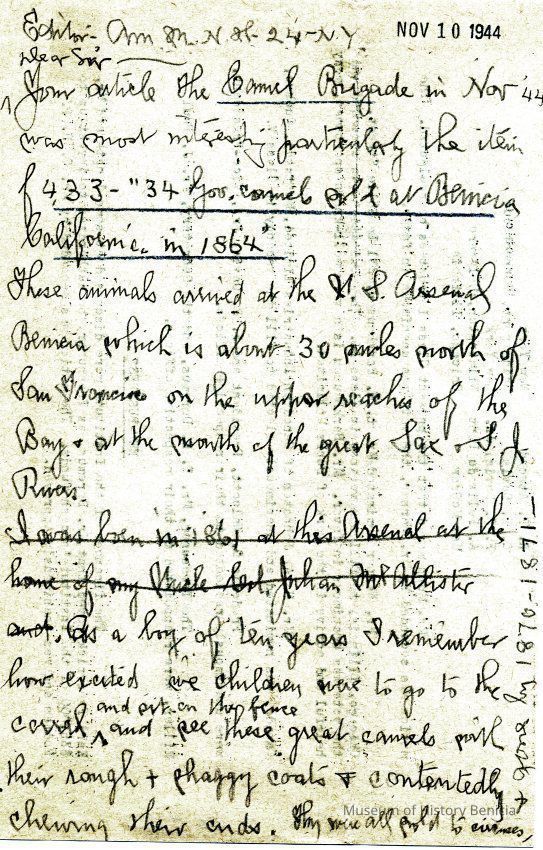 Editor - Am M. N. H. - 24 - N.Y.
NOV 10 1944
Dear Sir -
Your article the Camel Brigade in Nov '44
was most interesting particularly the item
433 - "34 Gov. camels sold at Benicia
California in 1864"
These animals arrived at the U. S. Arsenal
Benicia which is about 30 miles north of
San Francisco on the upper reaches of the
Bay & at the mouth of the great Sac & S. J.
Rivers.
I was born in 1861 at this Arsenal at the
home of my Uncle Col. Julian McAllister
As a boy of ten years I remember
how excited we children were to go to the
and sit on the fence
corral and see these great camels with
their rough & shaggy coats & contentedly
chewing their cuds. They were all sold to circuses,
- 1871 - 0281 by
Museum of History Benicia